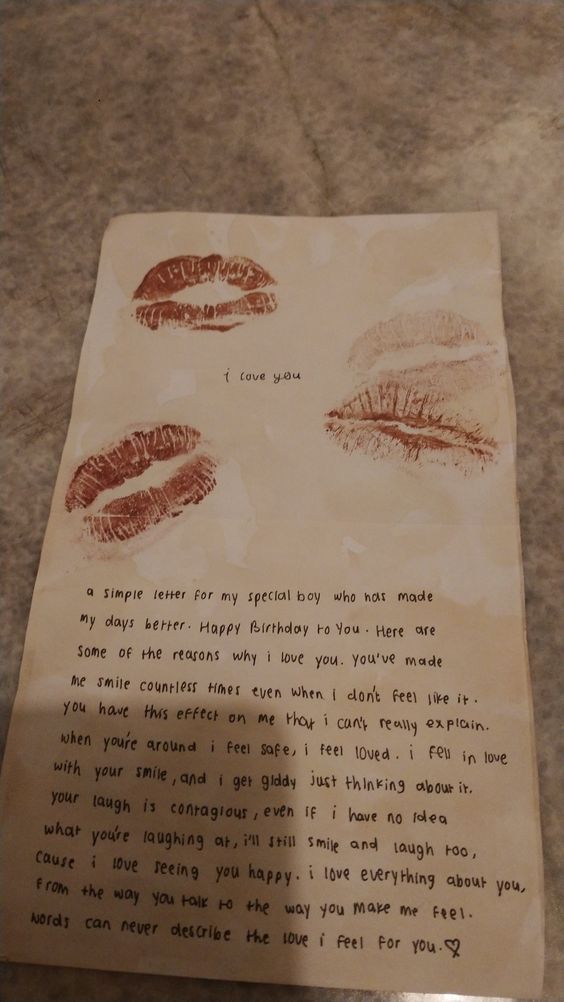 i love you
a simple letter for my special boy who has made
my days better. Happy Birthday to You. Here are
some of the reasons why i love you. you've made
me smile countless times even when i don't feel like it.
you have this effect on me that i can't really explain.
when you're around i feel safe, i feel loved. i fell in love
with your smile, and i get giddy just thinking about it.
your laugh is contagious, even if i have no idea
what you're laughing at, i'll still smile and laugh too,
cause i love seeing you happy. i love everything about you,
from the way you talk to the way you make me feel.
words can never describe the love i feel for you.♡